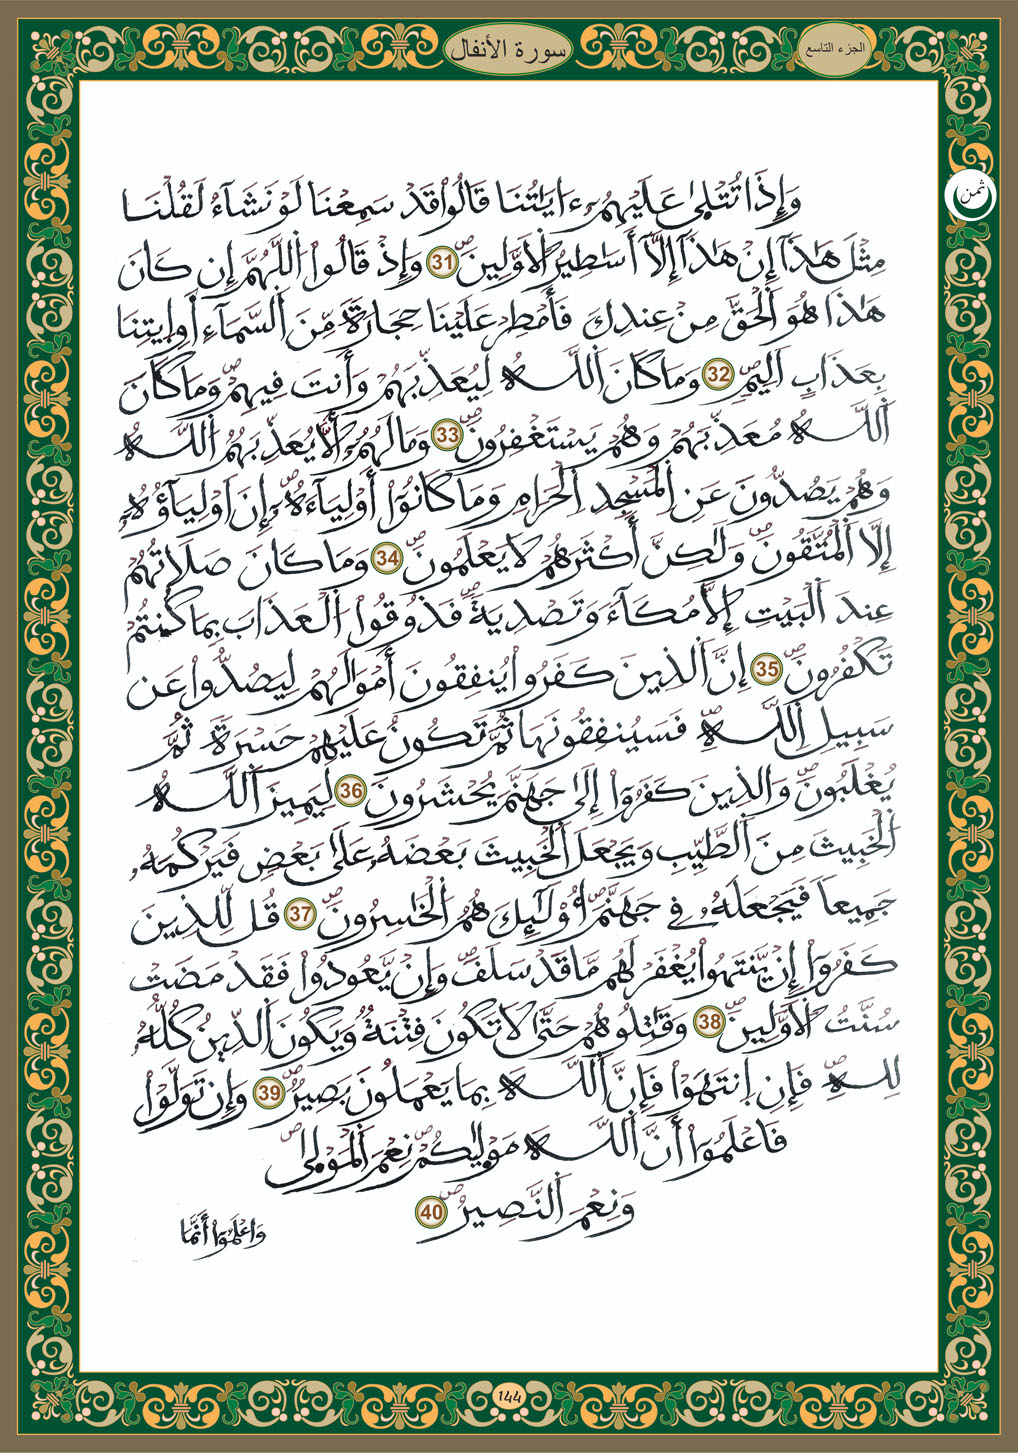 الجزء التاسع
سورة الأنفال
ثمن
وَإِذَا تُتْلَىٰ عَلَيْهِمُۥٓ ءَايَٰتُنَا قَالُواْ قَدْ سَمِعْنَا لَوْ نَشَآءُ لَقُلْنَا
مِثْلَ هَٰذَآ إِنْ هَٰذَآ إِلَّآ أَسَٰطِيرُ اُ۬لَاوَّلِينَۖ 31 وَإِذْ قَالُواْ اُ۬للَّهُمَّ إِن كَانَ
هَٰذَا هُوَ اَ۬لْحَقَّ مِنْ عِندِكَ فَأَمْطِرْ عَلَيْنَا حِجَارَةٗ مِّنَ اَ۬لسَّمَآءِ اَ۬وِ اِ۪يتِنَا
بِعَذَابٍ اَلِيمٖۖ 32 وَمَا كَانَ اَ۬للَّهُ لِيُعَذِّبَهُمْ وَأَنتَ فِيهِمْۖ وَمَا كَانَ
اَ۬للَّهُ مُعَذِّبَهُمْ وَهُمْ يَسْتَغْفِرُونَۖ 33 وَمَا لَهُمُۥٓ أَلَّا يُعَذِّبَهُمُ اُ۬للَّهُ
وَهُمْ يَصُدُّونَ عَنِ اِ۬لْمَسْجِدِ اِ۬لْحَرَامِ وَمَا كَانُوٓاْ أَوْلِيَآءَهُۥٓۖ إِنَ اَوْلِيَآؤُهُۥٓ
إِلَّا اَ۬لْمُتَّقُونَۖ وَلَٰكِنَّ أَكْثَرَهُمْ لَا يَعْلَمُونَۖ 34 وَمَا كَانَ صَلَاتُهُمْ
عِندَ اَ۬لْبَيْتِ إِلَّا مُكَآءٗ وَتَصْدِيَةٗۖ فَذُوقُواْ اُ۬لْعَذَابَ بِمَا كُنتُمْ
تَكْفُرُونَۖ 35 إِنَّ اَ۬لذِينَ كَفَرُواْ يُنفِقُونَ أَمْوَٰلَهُمْ لِيَصُدُّواْ عَن
سَبِيلِ اِ۬للَّهِۖ فَسَيُنفِقُونَهَا ثُمَّ تَكُونُ عَلَيْهِمْ حَسْرَةٗ ثُمَّ
يُغْلَبُونَۖ وَالذِينَ كَفَرُوٓاْ إِلَىٰ جَهَنَّمَ يُحْشَرُونَۖ 36 لِيَمِيزَ اَ۬للَّهُ
اُ۬لْخَبِيثَ مِنَ اَ۬لطَّيِّبِ وَيَجْعَلَ اَ۬لْخَبِيثَ بَعْضَهُۥ عَلَىٰ بَعْضٖ فَيَرْكُمَهُۥ
جَمِيعاٗ فَيَجْعَلَهُۥ فِي جَهَنَّمَۖ أُوْلَٰٓئِكَ هُمُ اُ۬لْخَٰسِرُونَۖ 37 قُل لِّلذِينَ
كَفَرُوٓاْ إِنْ يَّنتَهُواْ يُغْفَرْ لَهُم مَّا قَدْ سَلَفَۖ وَإِنْ يَّعُودُواْ فَقَدْ مَضَتْ
سُنَّتُ اُ۬لَاوَّلِينَۖ 38 وَقَٰتِلُوهُمْ حَتَّىٰ لَا تَكُونَ فِتْنَةٞ وَيَكُونَ اَ۬لدِّينُ كُلُّهُۥ
لِلهِۖ فَإِنِ اِ۪نتَهَوْاْ فَإِنَّ اَ۬للَّهَ بِمَا يَعْمَلُونَ بَصِيرٞۖ 39 وَإِن تَوَلَّوْاْ
فَاعْلَمُوٓاْ أَنَّ اَ۬للَّهَ مَوْلَىٰكُمْۖ نِعْمَ اَ۬لْمَوْلَىٰۖ
وَنِعْمَ اَ۬لنَّصِيرُۖ 40
وَاعْلَمُوٓاْ أَنَّمَا
144